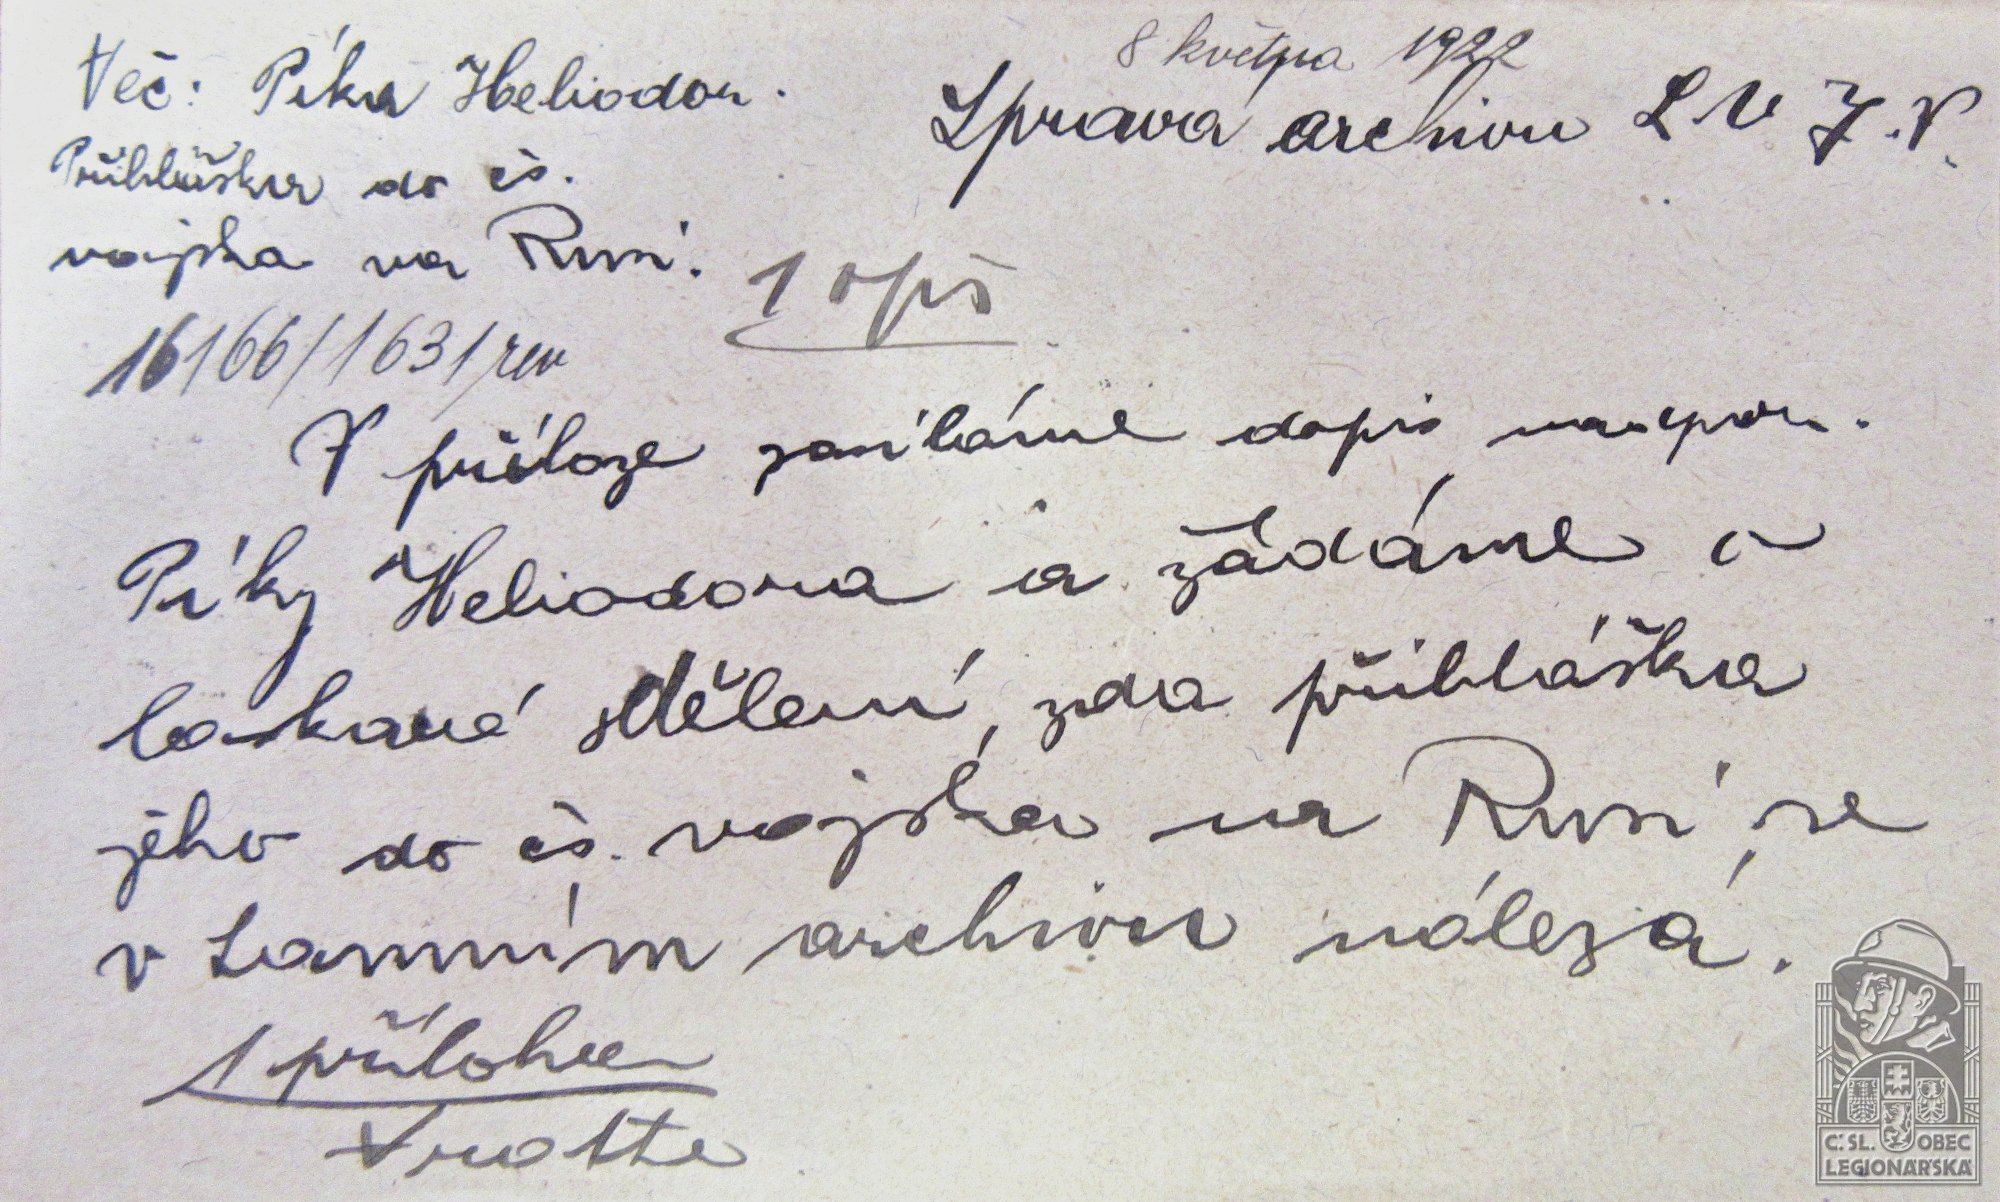 8 května 1922
Věc: Píka Heliodor.
Správa archivu
Přihláška do čs.
vojska na Rusi.
1 opis
16166/1631/rev
V příloze zasíláme dopis
Píky Heliodora a žádáme o
laskavé sdělení, zda přihláška
jeho do čs. vojska na Rusi se
v tamním archivu nálezá.
1 příloha
Vraťte
Č. SL. OBEC
LEGIONÁŘSKÁ